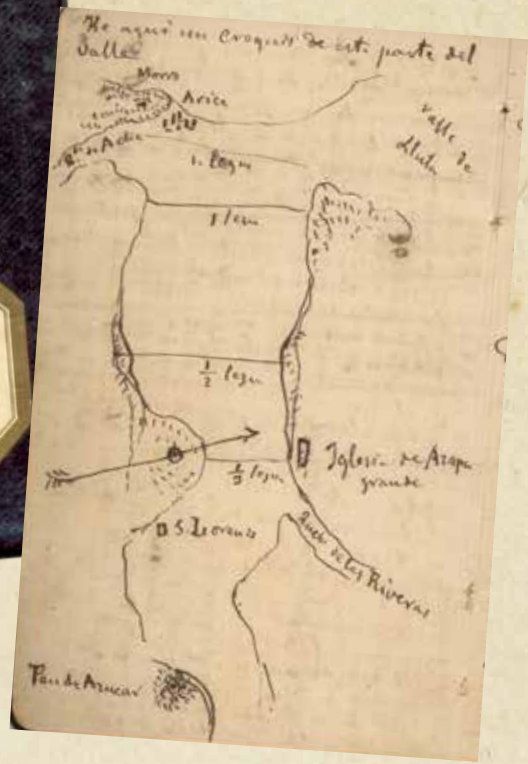 He aquí un Croquis de esta parte del
Valle
Morro
Arica
Valle de
Lluta
1. legua
1 legua
1/2 legua
1/2 legua
Iglesia de Azapa
grande
S. Lorenzo
de las Riveras
Pan de Azucar